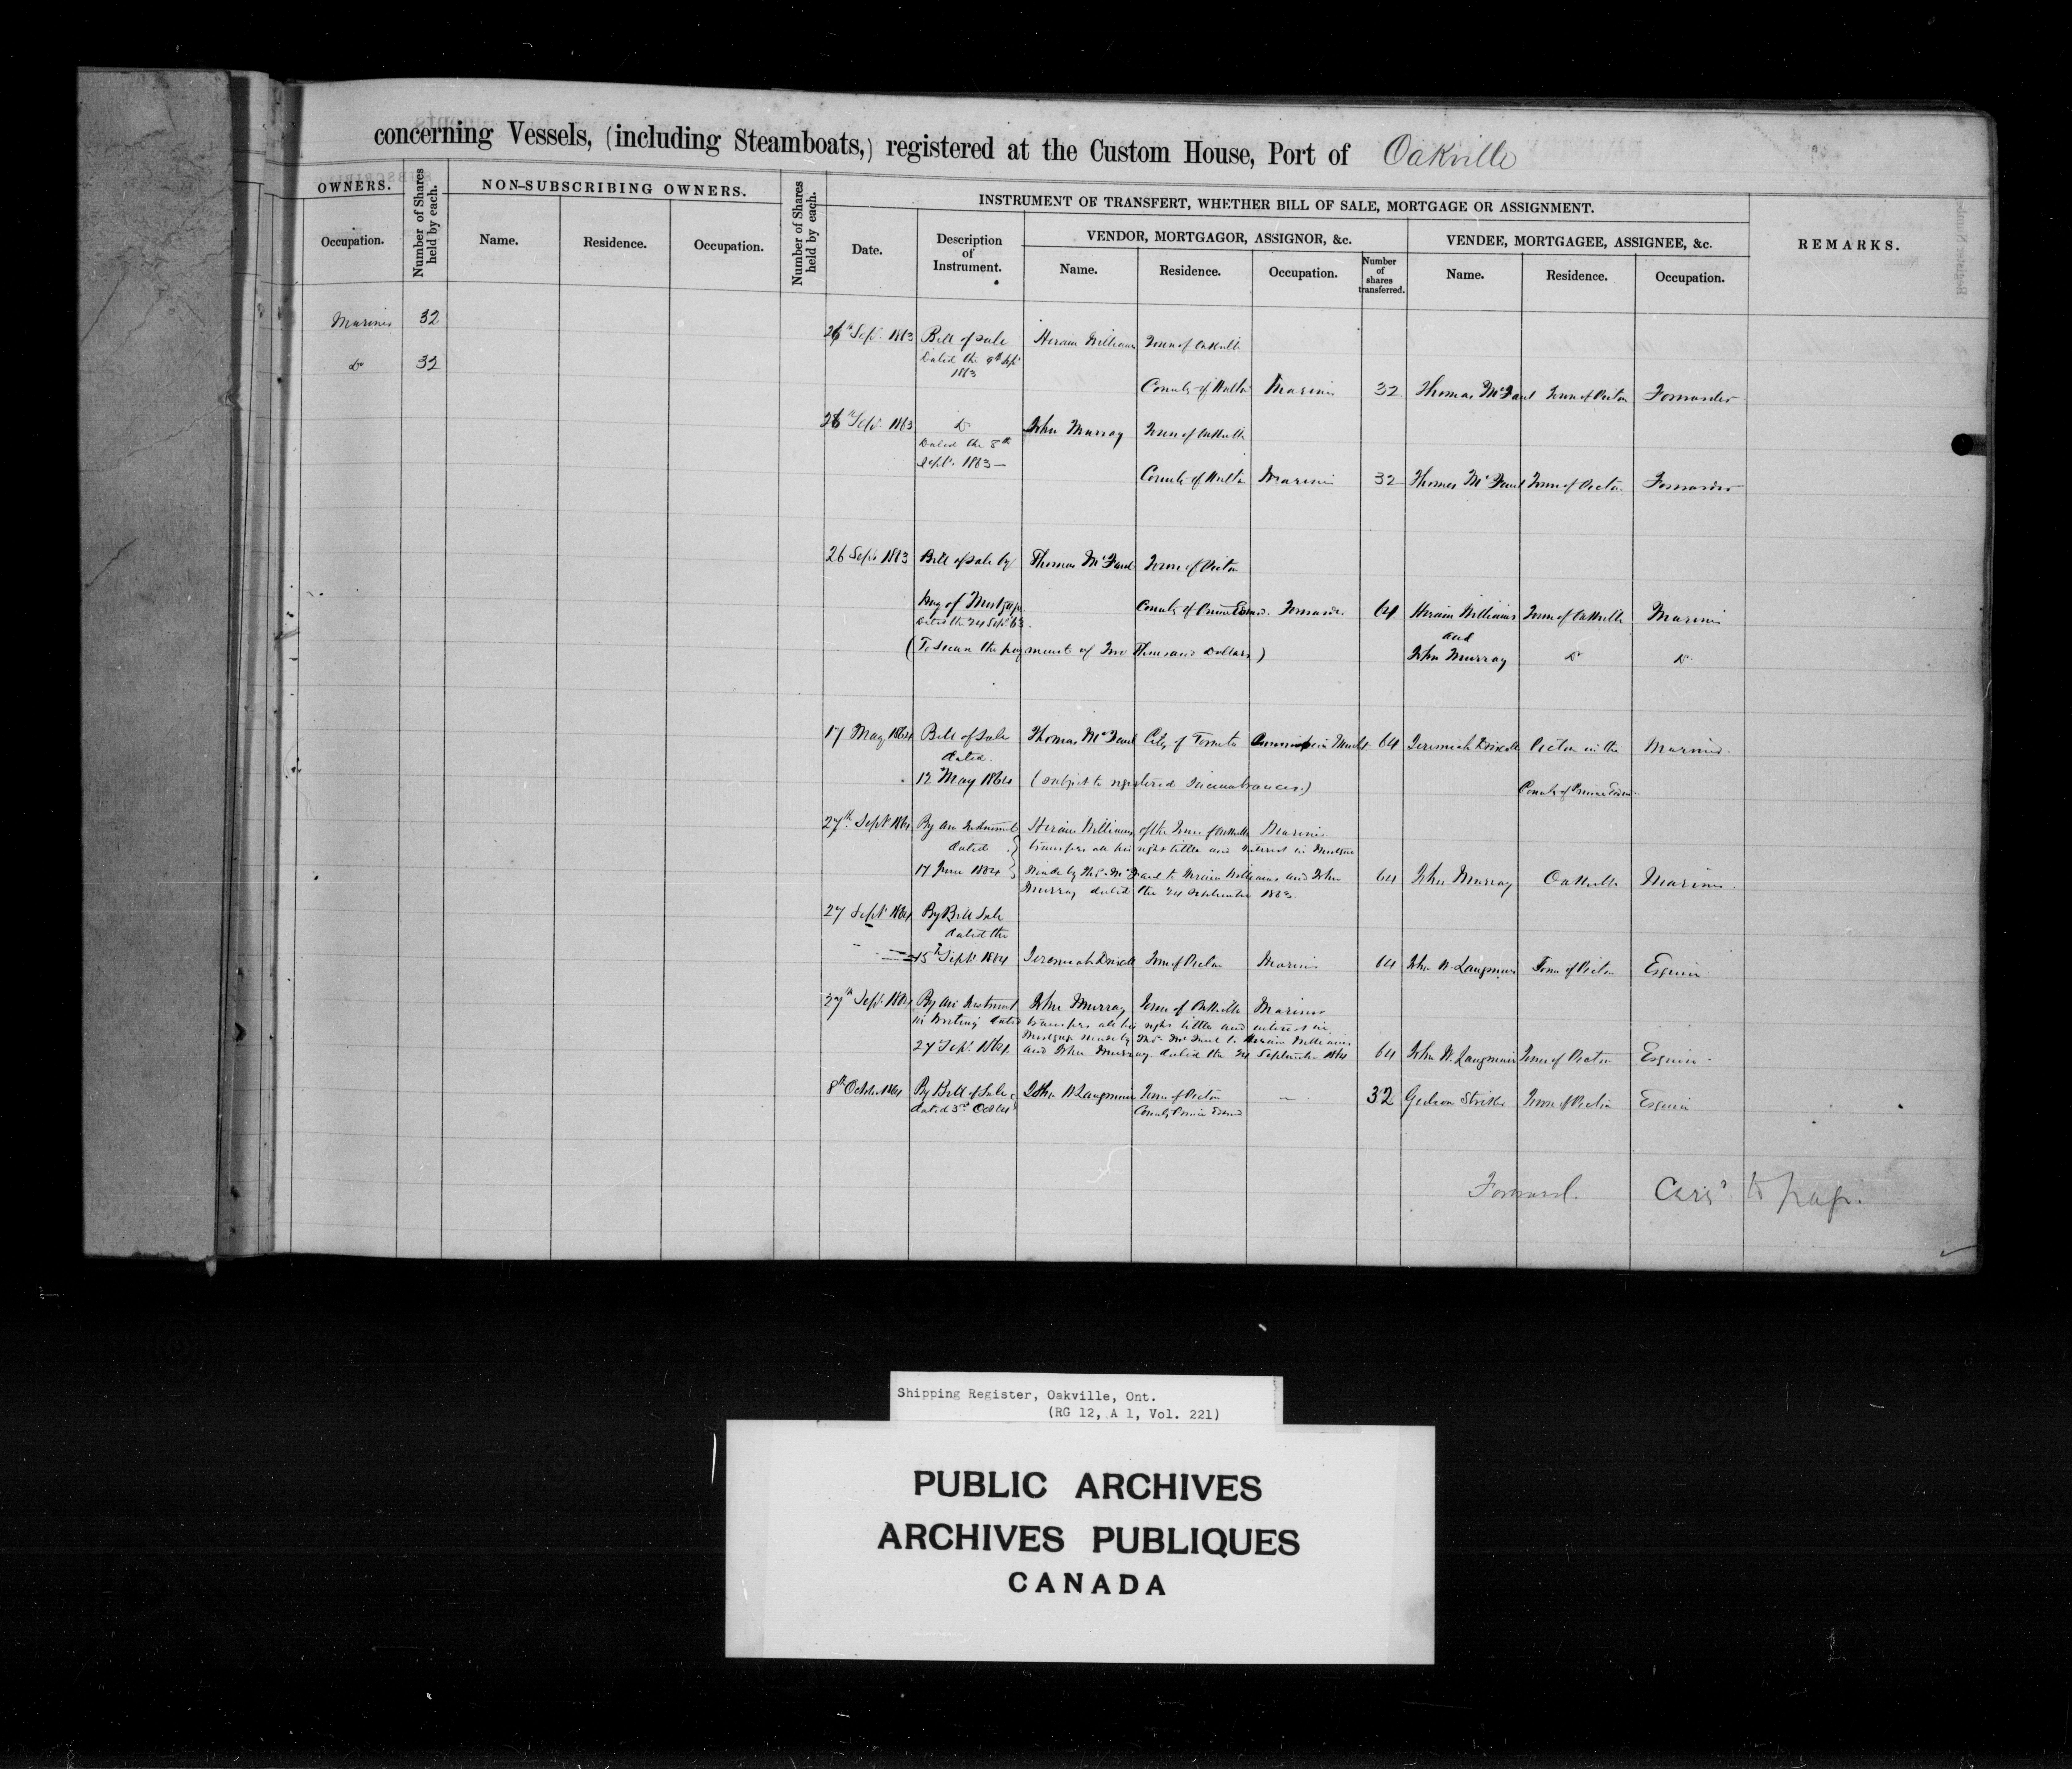 concerning Vessels, (including Steamboats,) registered at the Custom House, Port of Oakville
OWNERS.
Number of Shares held by each.
NON-SUBSCRIBING OWNERS.
Number of Shares held by each.
INSTRUMENT OF TRANSFERT, WHETHER BILL OF SALE, MORTGAGE OR ASSIGNMENT.
REMARKS.
Occupation.
Name.
Residence.
Occupation.
Date.
Description of Instrument.
VENDOR, MORTGAGOR, ASSIGNOR, &c.
VENDEE, MORTGAGEE, ASSIGNEE, &c.
Name.
Residence.
Occupation.
Number of shares transferred.
Name.
Residence.
Occupation.
Mariner 32
Do 32
26th Sept. 1863 Bill of Sale Hiram Williams Town of Oakville
Dated the 9th Sept
1863
County of Halton Mariner 32 Thomas McFaul Town of Picton Forwarder
26th Sept. 1863 Do John Murray Town of Oakville
Dated the 8th
Sept. 1863—
County of Halton Mariner 32 Thomas McFaul Town of Picton Forwarder
26 Sept. 1863 Bill of Sale by Thomas McFaul Town of Picton
Way of Mortgage County of Prince Edward. Forwarder 64 Hiram Williams Town of Oakville Mariner
Dated the 24 Sept 63. and
(To Secure the payment of Two Thousand Dollars) John Murray Do Do
17 May 1864 Bill of Sale Thomas McFaul City of Toronto Commission Mercht 64 Jeremiah Driscoll Picton in the Mariner.
dated
12 May 1864 (Subject to registered Incumbrances.) County of Prince Edward
27th. Sept 1864 By an Instrument Hiram Williams of the Town of Oakville Mariner
dated transfers all his right tittle and interest in Mortgage
17 June 1864 made by Thos. McFaul to Hiram Williams and John 64 John Murray Oakville Mariner.
Murray dated the 24 September 1863.
27 Sept 1864 By Bill Sale
dated the
15th Sept 1864 Jeremiah Driscoll Town of Picton Mariner 64 John W. Langmuir Town of Picton Esquire
27th Sept. 1864 By an Instrument John Murray Town of Oakville Mariner
in Writing dated transfers all his right tittle and interest in
Mortgage made by Thos. McFaul to Hiram Williams
27 Sept. 1864 and John Murray dated the 24 September 1864 64 John W. Langmuir Town of Picton Esquire.
8th October 1864 By Bill of Sale John W Langmuir Town of Picton — 32 Gideon Striker Town of Picton Esquire
dated 3rd Oct 64 County Prince Edward
Forward. to page.
Shipping Register, Oakville, Ont.
(RG 12, A 1, Vol. 221)
PUBLIC ARCHIVES
ARCHIVES PUBLIQUES
CANADA